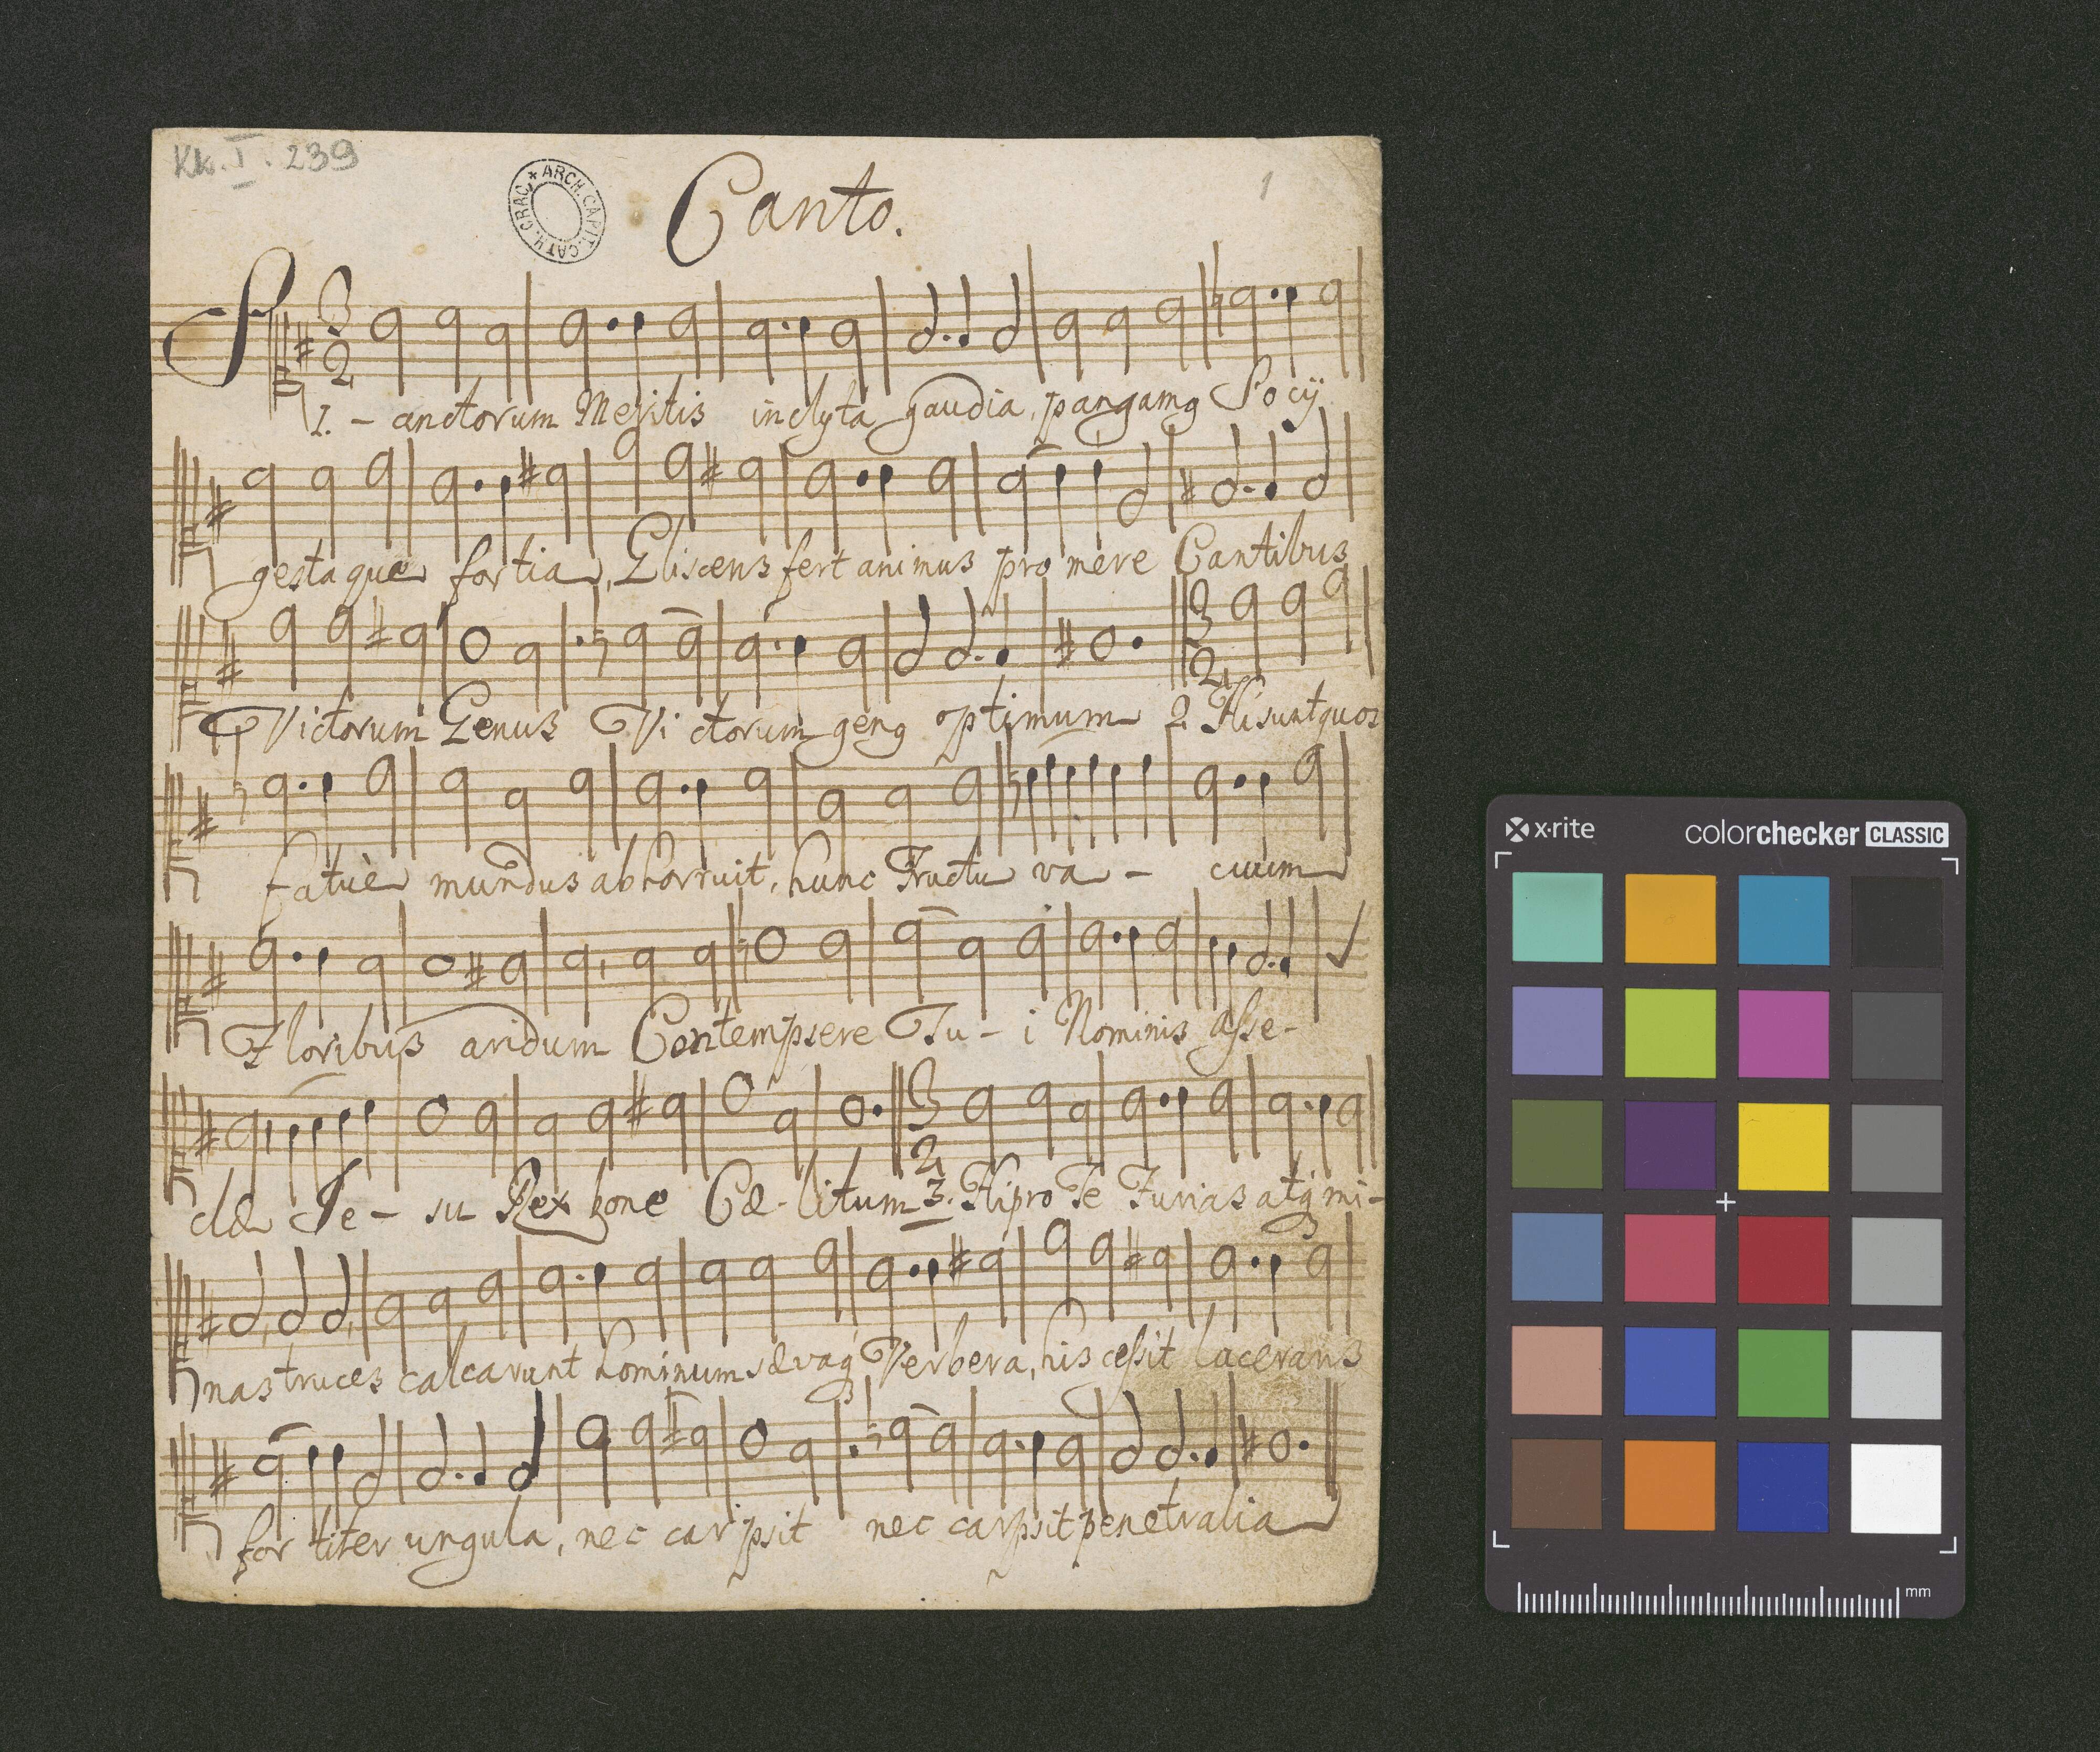 Kk. I. 239
ARCH. CAPIT. CATH. CRAC.
Canto.
1
3
2
S
I. - anctorum Meritis inclyta gaudia, pangamq Socÿ
gestaque fortia, Gliscens fert animus promere Cantibus
3
2
Victorum Genus Victorum genq optimum 2 Hi sunt quos
fatuè mundus abhorruit, hunc Fructu va - cuum
Floribus aridum Contempsere Tu - i Nominis asse -
3
2
clæ Je - su Rex bone Cæ - litum 3. Hi pro Te Furias atq mi -
nas truces calcarunt hominum sævaq Verbera, his cessit lacerans
for titer ungula, nec carpsit nec carpsit penetralia
x·rite
colorchecker CLASSIC
mm